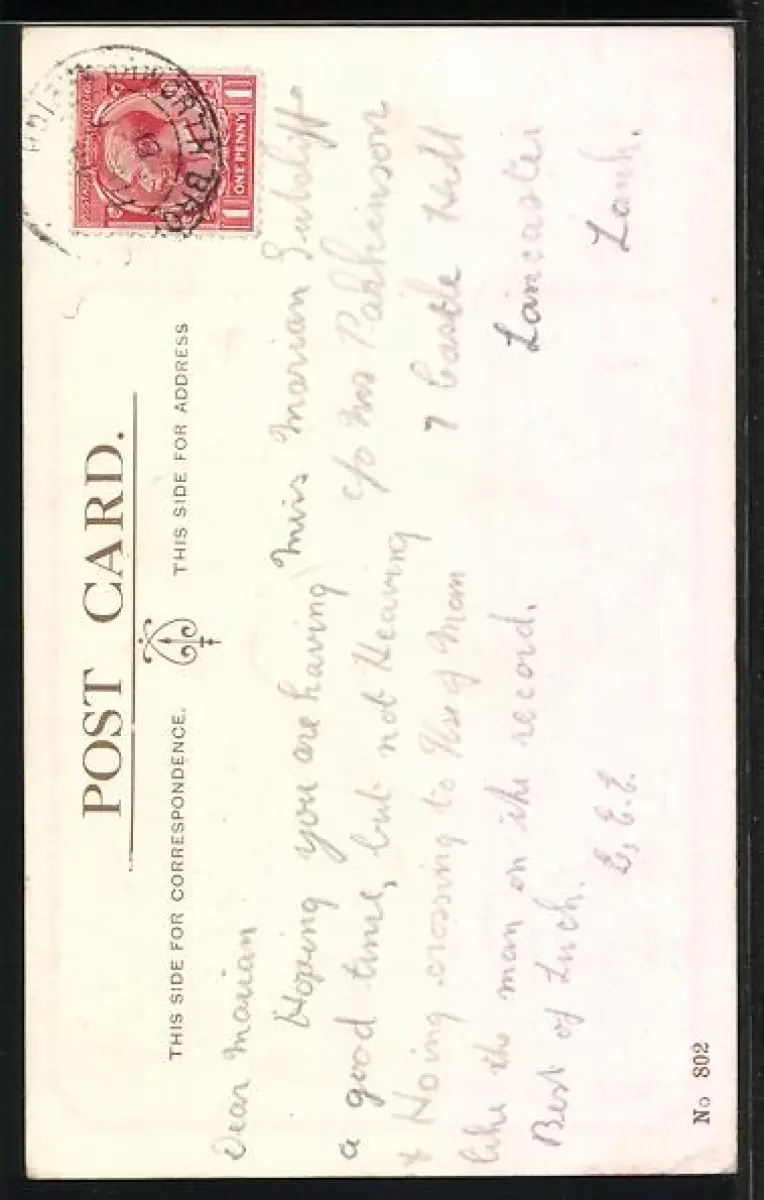 POST CARD.
THIS SIDE FOR CORRESPONDENCE.
THIS SIDE FOR ADDRESS
ONE PENNY
1
1
WORTH BRO
Dear Marian
Hoping you are having
a good time, but not Heaving
& Hoing crossing to Isle of Mam
like the man on the record.
Best of Luck.
Miss Marian Sutcliffe
c/o Mrs Parkinson
7 Castle Hill
Lancaster
Lanh.
No 802